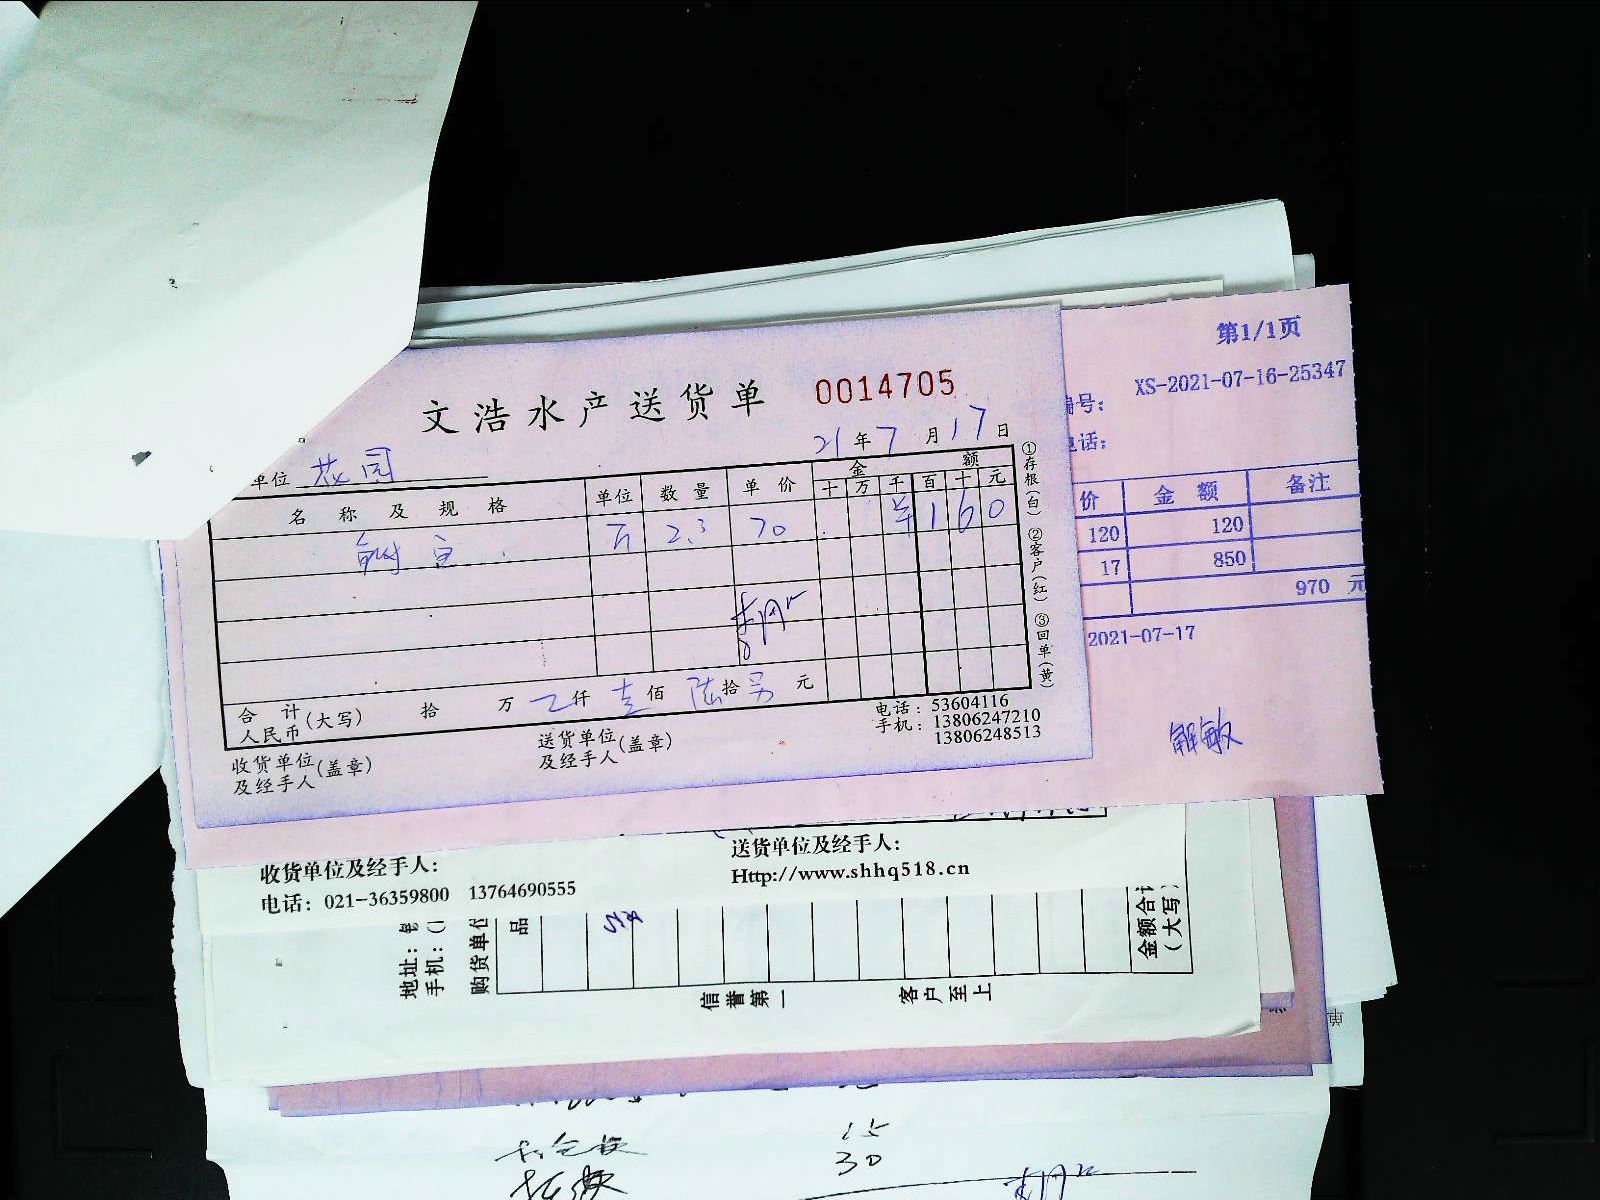 文浩水产送货单 0014705
21年7月17日
单位 花园
名称及规格 单位 数量 单价 金额
十 万 千 百 十 元
鲥鱼 斤 2.3 70 1 6 0
合计人民币(大写) 拾 万 仟 壹佰 陆拾 另 元
收货单位及经手人(盖章)
送货单位及经手人(盖章)
电话:53604116
手机:13806247210
13806248513
①存根(白) ②客户(红) ③回单(黄)
第1/1页
编号: XS-2021-07-16-25347
电话:
价 金额 备注
120 120
17 850
970 元
2021-07-17
解敏
收货单位及经手人:
送货单位及经手人:
电话: 021-36359800 13764690555
Http://www.shhq518.cn
地址:
手机:
购货单位
品
金额合计
(大写)
信誉第一 客户至上
15
30